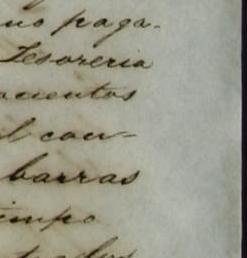 no paga-
Tesoreria
cuentos
l con-
barras
tiempo